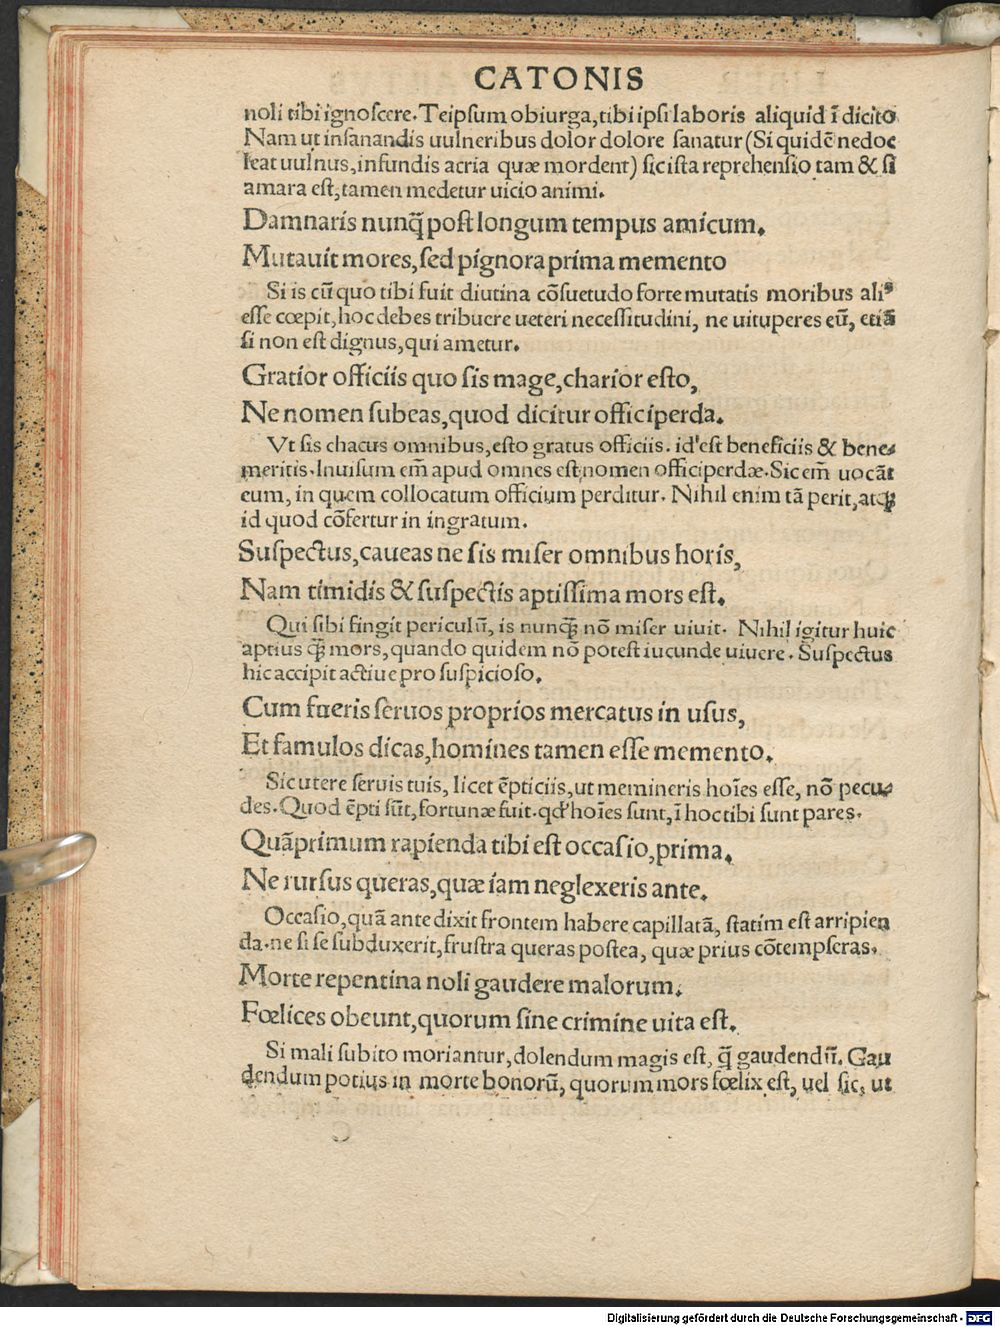 CATONIS
noli tibi ignoſcere. Teipſum obiurga, tibi ipſi laboris aliquid ī dicito
Nam ut in ſanandis uulneribus dolor dolore ſanatur (Si quidē ne doc
leat uulnus, infundis acria quæ mordent) ſic iſta reprehenſio tam & ſi
amara eſt, tamen medetur uicio animi.
Damnaris nunq̃ poſt longum tempus amicum.
Mutauit mores, ſed pignora prima memento
Si is cū quo tibi fuit diutina cōſuetudo forte mutatis moribus aliꝰ
eſſe cœpit, hoc debes tribuere ueteri neceſſitudini, ne uituperes eū, etiā
ſi non eſt dignus, qui ametur.
Gratior officiis quo ſis mage, charior eſto,
Ne nomen ſubeas, quod dicitur officiperda.
Vt ſis chacus omnibus, eſto gratus officiis. id'eſt beneficiis & bene-
meritis. Inuiſum em̄ apud omnes eſt, nomen officiperdæ. Sic em̄ uocāt
eum, in quem collocatum officium perditur. Nihil enim tā perit, atq;
id quod cōfertur in ingratum.
Suſpectus, caueas ne ſis miſer omnibus horis,
Nam timidis & ſuſpectis aptiſſima mors eſt.
Qui ſibi fingit periculū, is nunq̄ nō miſer uiuit. Nihil igitur huic
aptius q̄ mors, quando quidem nō poteſt iucunde uiuere. Suſpectus
hic accipit actiue pro ſuſpicioſo.
Cum fueris ſeruos proprios mercatus in uſus,
Et famulos dicas, homines tamen eſſe memento.
Sic utere ſeruis tuis, licet ēpticiis, ut memineris hoīes eſſe, nō pecu-
des. Quod ēpti ſūt, fortunæ fuit. qđ hoīes ſunt, ī hoc tibi ſunt pares.
Quāprimum rapienda tibi eſt occaſio, prima,
Ne rurſus queras, quæ iam neglexeris ante.
Occaſio, quā ante dixit frontem habere capillatā, ſtatim eſt arripien
da. ne ſi ſe ſubduxerit, fruſtra queras poſtea, quæ prius cōtempſeras.
Morte repentina noli gaudere malorum.
Fœlices obeunt, quorum ſine crimine uita eſt.
Si mali ſubito moriantur, dolendum magis eſt, q̃ gaudendū. Gau
dendum potius in morte bonorū, quorum mors fœlix eſt, uel ſic, ut
Digitalisierung gefördert durch die Deutsche Forschungsgemeinschaft - DFG